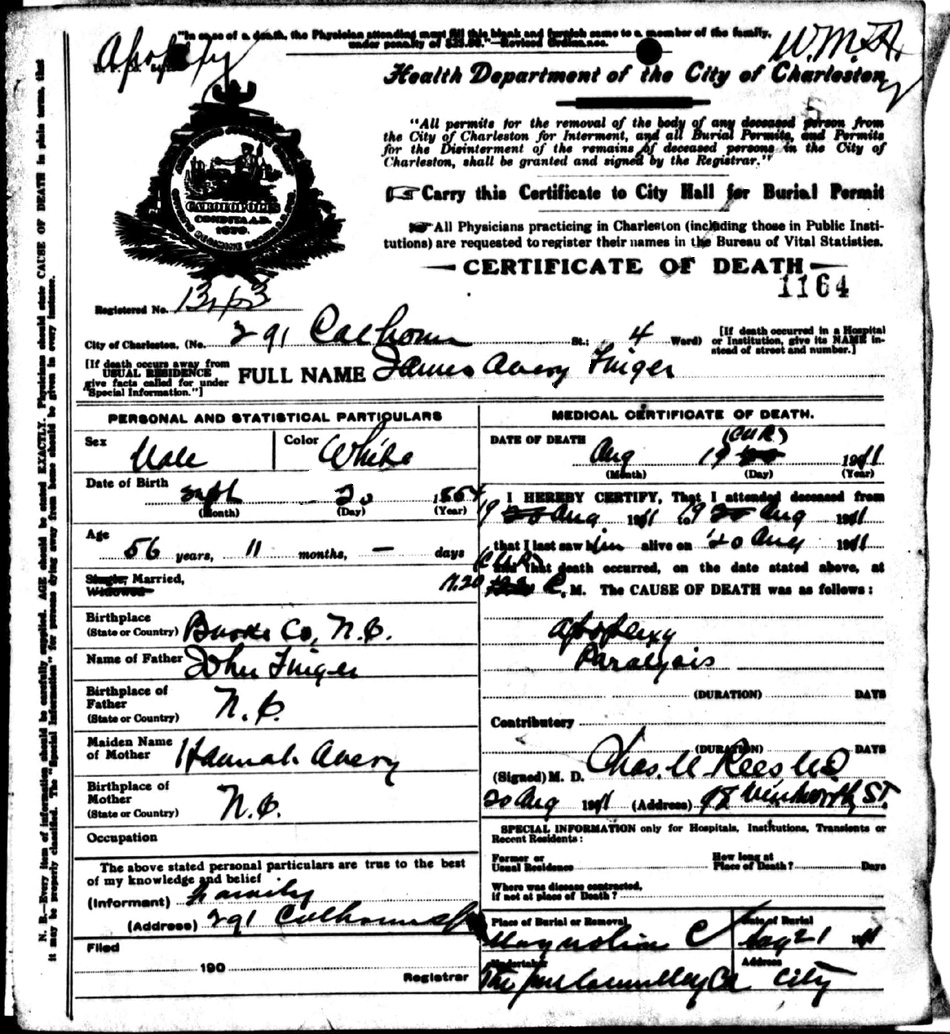 "In case of a death, the Physician attending must fill this blank and furnish same to a member of the family,
under penalty of $25.00."—Revised Ordinance.
Apoplexy
W.M.A.
Health Department of the City of Charleston
"All permits for the removal of the body of any deceased person from
the City of Charleston for Interment, and all Burial Permits, and Permits
for the Disinterment of the remains of deceased persons in the City of
Charleston, shall be granted and signed by the Registrar."
Carry this Certificate to City Hall for Burial Permit
All Physicians practicing in Charleston (including those in Public Insti-
tutions) are requested to register their names in the Bureau of Vital Statistics.
CAROLOPOLIS
CONDITA A.D.
1670.
CERTIFICATE OF DEATH
1164
Registered No. 1363
City of Charleston, (No. 291 Calhoun St.; 4 Ward)
[If death occurred in a Hospital
or Institution, give its NAME in-
stead of street and number.]
[If death occurs away from
USUAL RESIDENCE
give facts called for under
"Special Information."]
FULL NAME James Avery Finger
PERSONAL AND STATISTICAL PARTICULARS
Sex Male Color White
Date of Birth Sept 20 1854
(Month) (Day) (Year)
Age 56 years, 11 months, — days
Single, Married,
Widowed
Birthplace
(State or Country) Burke Co, N.C.
Name of Father John Finger
Birthplace of
Father
(State or Country) N.C.
Maiden Name
of Mother Hannah Avery
Birthplace of
Mother
(State or Country) N.C.
Occupation
The above stated personal particulars are true to the best
of my knowledge and belief
(Informant) Family
(Address) 291 Calhoun St
Filed
190
Registrar
MEDICAL CERTIFICATE OF DEATH.
DATE OF DEATH Aug 19 (CUR) 1911
(Month) (Day) (Year)
I HEREBY CERTIFY, That I attended deceased from
19 20 Aug 1911 to 19 20 Aug 1911
that I last saw him alive on 20 Aug 1911
(CUR)
and that death occurred, on the date stated above, at
7.20 P. M. The CAUSE OF DEATH was as follows:
Apoplexy
Paralysis
(DURATION) DAYS
Contributory
(DURATION) DAYS
(Signed) M. D. Chas. U. Rees MD
20 Aug 1911 (Address) 98 Wentworth St.
SPECIAL INFORMATION only for Hospitals, Institutions, Transients or
Recent Residents:
Former or
Usual Residence
How long at
Place of Death? Days
Where was disease contracted,
if not at place of Death?
Place of Burial or Removal
Magnolia C
Date of Burial
Aug 21 1911
Undertaker
The Connelley Co
Address
City
N. B.—Every item of information should be carefully supplied. AGE should be stated EXACTLY. Physicians should state CAUSE OF DEATH in plain terms, that
it may be properly classified. The "Special Information" for persons dying away from home should be given in every instance.